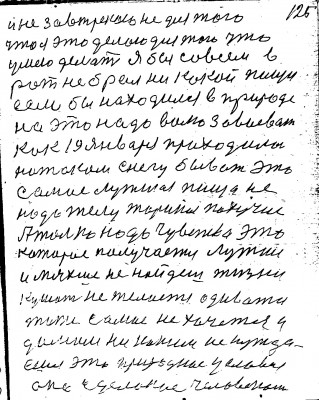 125
и не завтрекаю не для того
что я это делаю для того что
умею делать я бы совсем в
рот не брал ни какой пищи
если бы находился в природе
на это надо волю завоевать
как 19 января приходилось
по такому снегу бывать это
самое лучшая пища не
надо
а только надо чувства это
которое получается лутший
и мягкие не найдеш жизни
кушать не желается одивать
тоже самое не хочется а
домом ни каким не нужда-
ешся это природное условия
она сделоное человеком